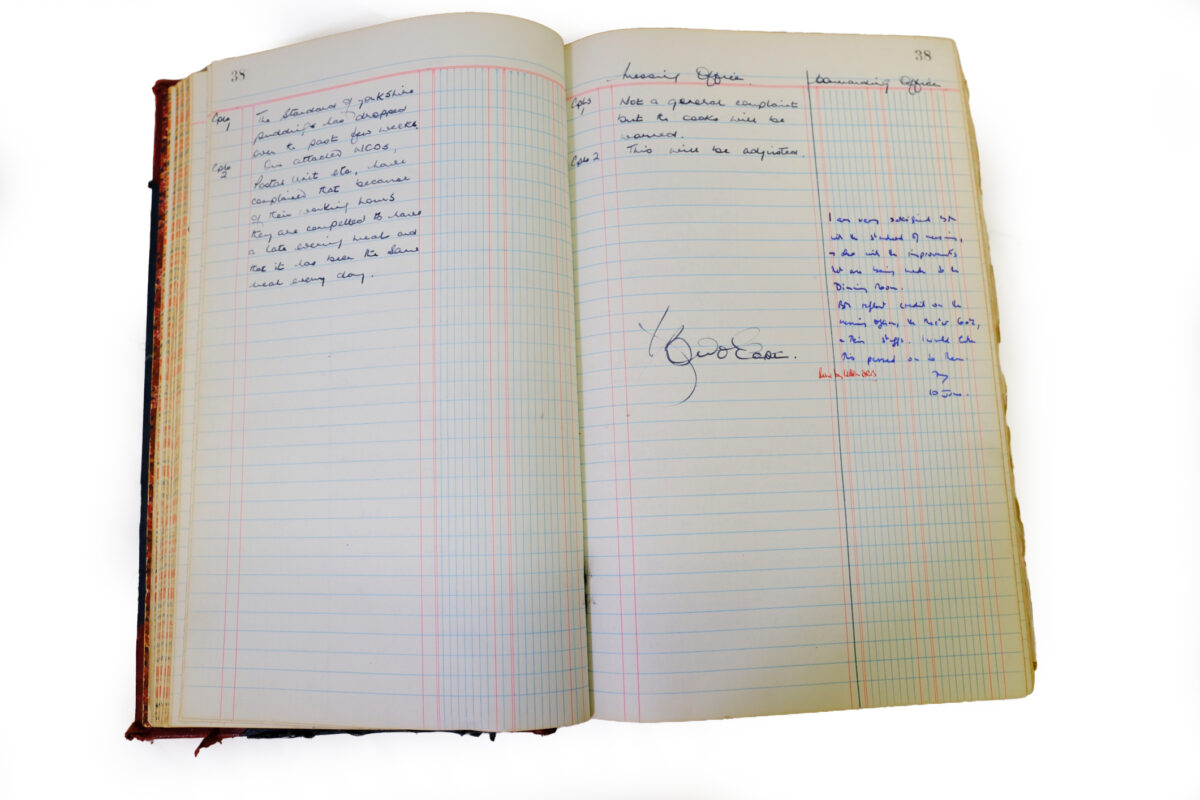 38
Cpls
1
The Standard of yorkshire
puddings has dropped
over the past few weeks
Cpls
2
Our attached NCOs,
Postal Unit etc, have
complained that because
of their working hours
they are compelled to have
a late evening meal and
that it has been the same
meal every day.
38
Messing Officer
Commanding Officer
Cpls
Not a general complaint
but the cooks will be
warned.
Cpls 2
This will be adjusted.
I am very satisfied
with the standard of messing,
also with the improvements
that are being made to the
Dining Room.
Both reflect credit on the
messing officer, the
their staffs. I would like
this passed on to them
10 June.